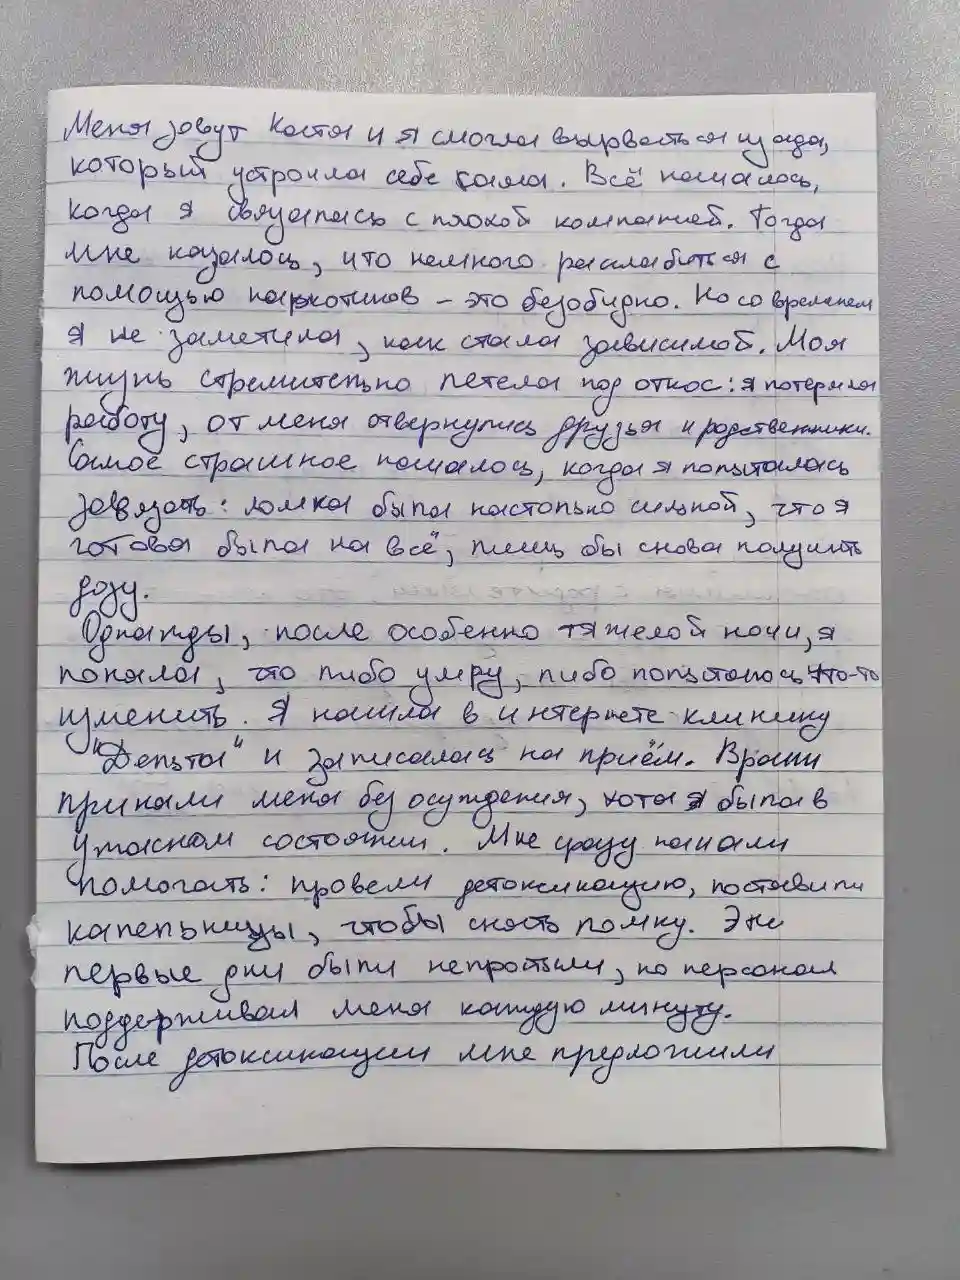 Меня зовут Костя и я смогла вырваться из ада,
который устроила себе сама. Всё началось,
когда я связалась с плохой компанией. Тогда
мне казалось, что немного расслабиться с
помощью наркотиков – это безобидно. Но со временем
я не заметила, как стала зависимой. Моя
жизнь стремительно летела под откос: я потеряла
работу, от меня отвернулись друзья и родственники.
Самое страшное началось, когда я попыталась
завязать: ломка была настолько сильной, что я
готова была на всё, лишь бы снова получить
дозу.
Однажды, после особенно тяжелой ночи, я
поняла, что либо умру, либо попытаюсь что-то
изменить. Я нашла в интернете клинику
"Дельта" и записалась на приём. Врачи
приняли меня без осуждения, хотя я была в
ужасном состоянии. Мне сразу начали
помогать: провели детоксикацию, поставили
капельницы, чтобы снять ломку. Эти
первые дни были непростыми, но персонал
поддерживал меня каждую минуту.
После детоксикации мне предложили